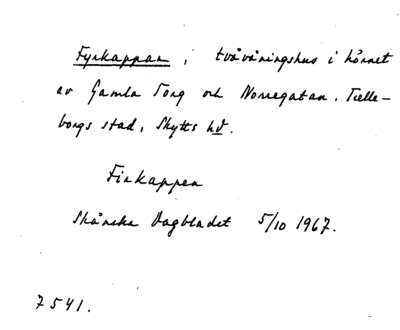 Fyrkappan, tvåvåningshus i hörnet
av Gamla Torg och Norregatan. Trelle-
borgs stad, Skytts hd.
Firkappen
Skånska Dagbladet 5/10 1967.
7541.